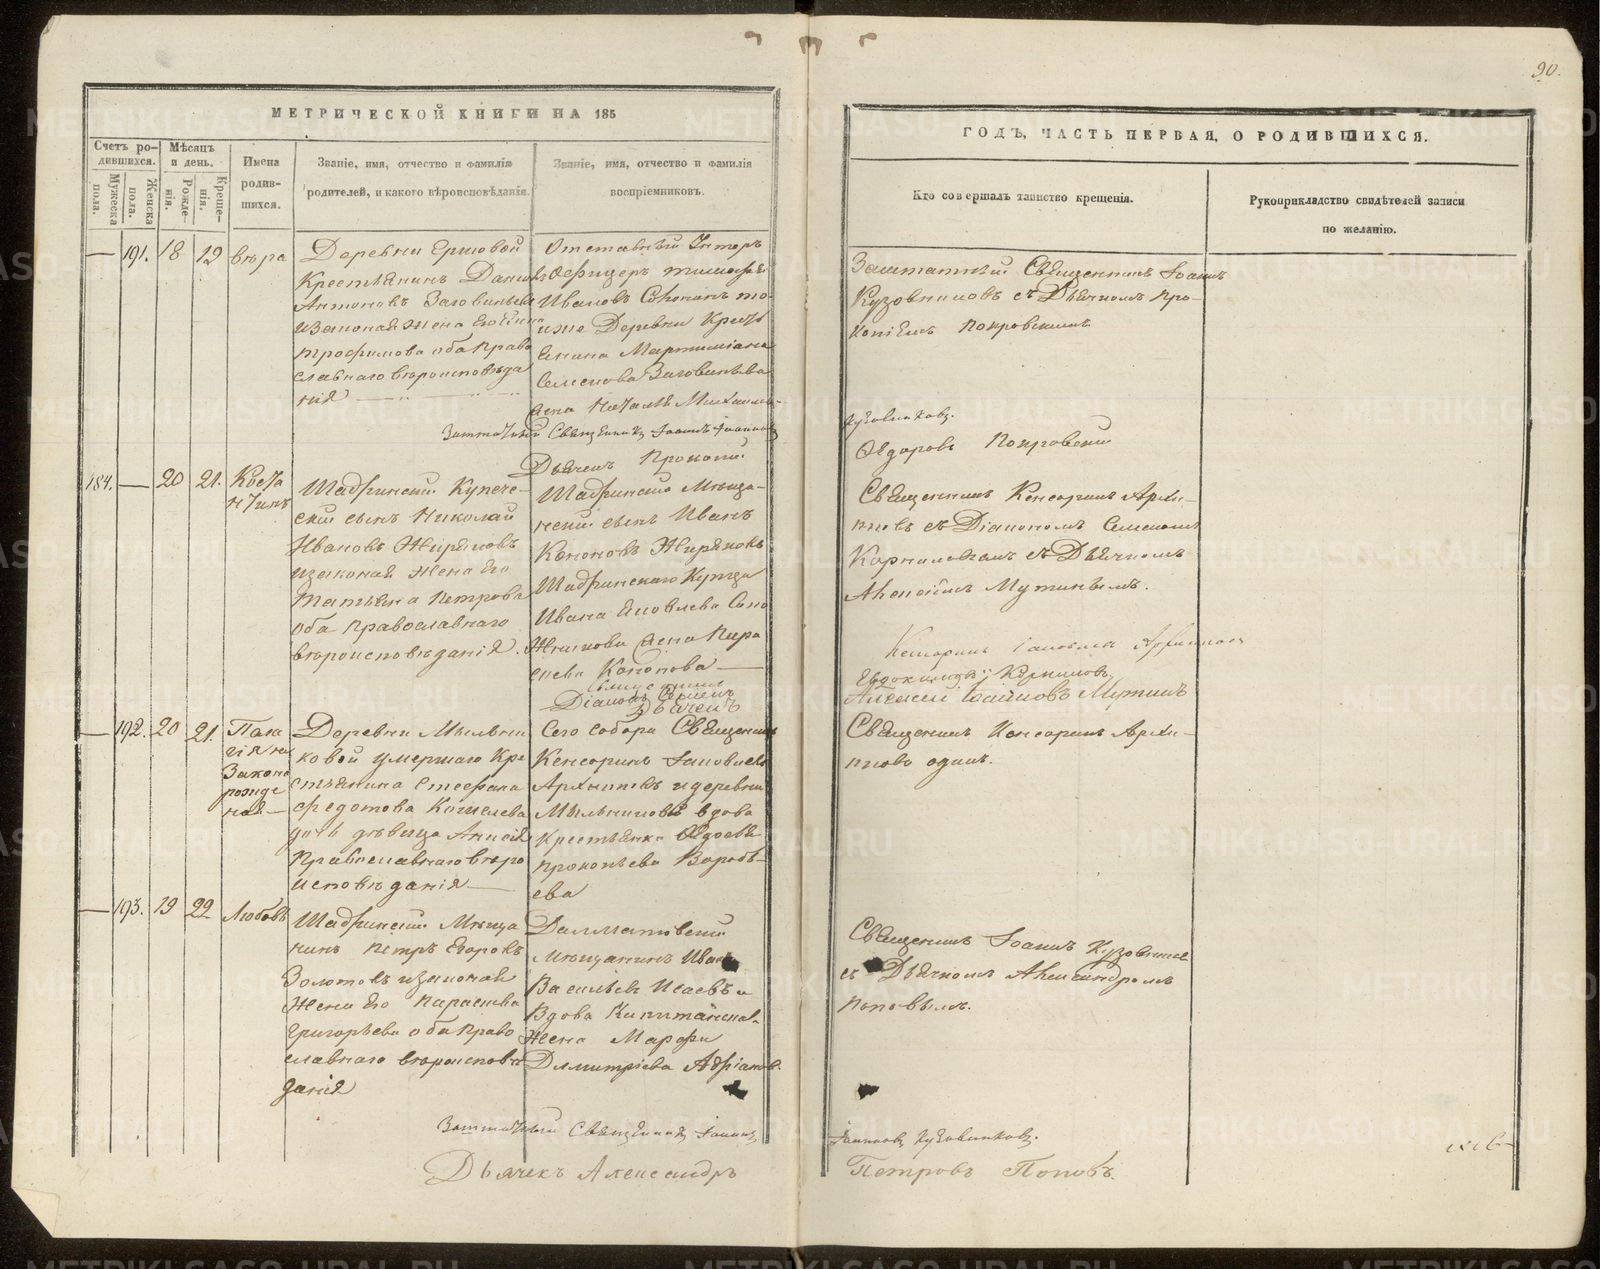 90.
МЕТРИЧЕСКОЙ КНИГИ НА 185
ГОДЪ, ЧАСТЬ ПЕРВАЯ, О РОДИВШИХСЯ.
Счетъ ро-
дившихся.
Мужеска
пола.
Женска
пола.
Мѣсяцъ
и день.
Рожде-
нія.
Креще-
нія.
Имена
родив-
шихся.
Званіе, имя, отчество и фамилія
родителей, и какого вѣроисповѣданія.
Званіе, имя, отчество и фамилія
воспріемниковъ.
Кто совершалъ таинство крещенія.
Рукоприкладство свидѣтелей записи
по желанію.
— 191. 18 19 Вѣра
Деревни Ершовой
Крестьянинъ
Антоновъ
изаконая жена его
Трофимова оба право
славнаго вѣроисповѣда
нія
Отставный Унтеръ
Офицеръ
Ивановъ
иже Деревни Кресть
янина
Семенова
жена
Заштатный Священникъ Іоаннъ
Кузовниковъ съ Дьячкомъ Про-
копіемъ Покровскимъ
Заштатный Священникъ Іоаннъ Іоанновъ
Кузовниковъ.
Дьячекъ Прокопій
Ѳедоровъ Покровскій
184. — 20 21. Конста
нтинъ
Шадринскій Купече-
скій сынъ Николай
Ивановъ Ширяновъ
изаконая жена его
Татьяна Петрова
оба православнаго
вѣроисповѣданія.
Шадринскій Мѣща-
нскій сынъ Иванъ
Кононовъ
Шадринскаго Купца
Ивана Яковлева
жена
Кононова
Священникъ Кенсоринъ Архи-
повъ съ Діакономъ Семеномъ
Корниловымъ съ Дьячкомъ
Алексѣемъ Мутинымъ.
Священникъ
Кенсоринъ
Діаконъ Семенъ
Евдокимовъ Корниловъ
Дьячекъ
Алексей Мутинъ
— 192. 20 21. Пела
гія
Закона
рожде
ная
Деревни Мыльни
ковой умершаго Кре
стьянина Стефана
Федотова Кошелева
дочь дѣвица
Православнаго вѣро
исповѣданія
Сего собора Священникъ
Кенсоринъ
Архиповъ идеревни
Мыльниковой вдова
Крестьянка
Прокопьева Воробь-
ева
Священникъ Кенсоринъ Архи-
повъ одинъ.
— 193. 19 22 Любовь
Шадринскій Мѣща
нинъ Петръ Егоровъ
Золотовъ изаконая
жена его Параскева
Григорьева оба право
славнаго вѣроисповѣ
данія
Далматовскій
Мѣщанинъ Иванъ
Васильевъ Исаевъ и
Вдова
жена Марфа
Димитріева
Священникъ Іоаннъ Кузовников
съ Дьячкомъ Александромъ
Поповымъ.
Заштатный Священникъ Іоаннъ
Іоанновъ Кузовниковъ.
Дьячекъ Александръ
Петровъ Поповъ.
METRIKI.GASO-URAL.RU